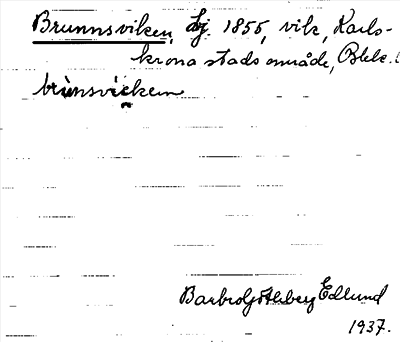 Brunnsviken, Lj. 1855, vik, Karls-
krona stadsområde, Blek. l
brùnsvicken
Barbro Götlberg Edlund
1937.